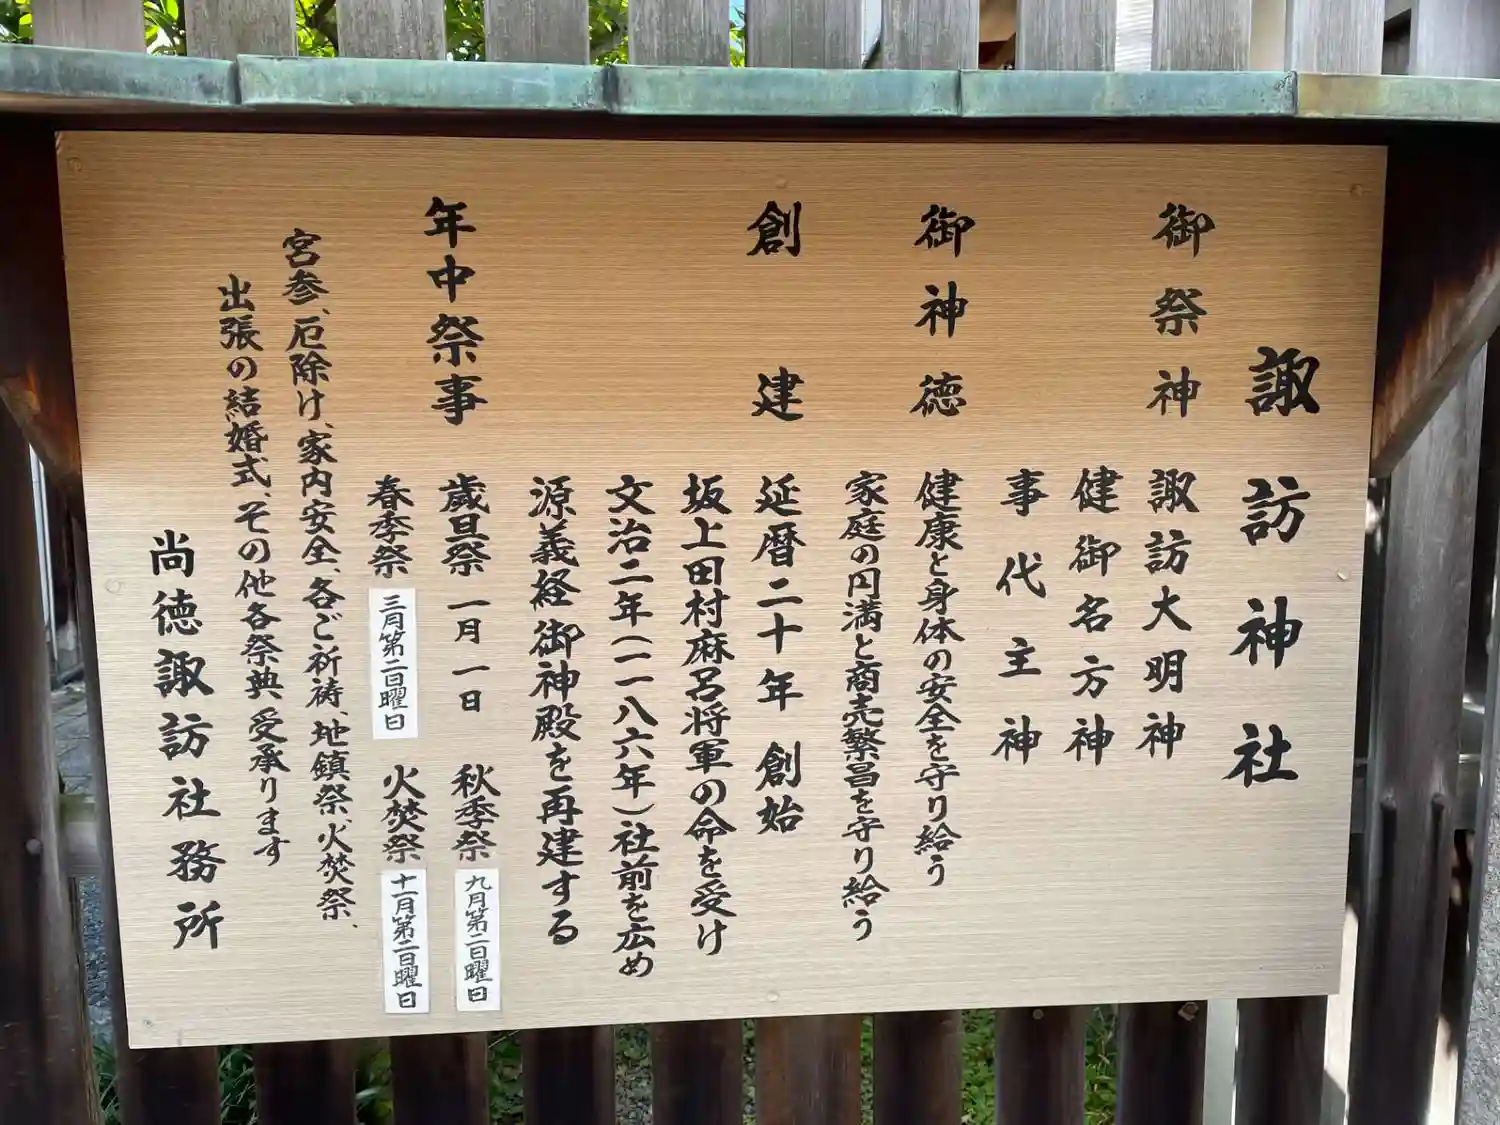 諏訪神社
御祭神 諏訪大明神
健御名方神
事代主神
御神徳 健康と身体の安全を守り給う
家庭の円満と商売繁昌を守り給う
創建 延暦二十年 創始
坂上田村麻呂将軍の命を受け
文治二年(一一八六年)社前を広め
源義経御神殿を再建する
年中祭事 歳旦祭 一月一日 秋季祭 九月第二日曜日
春季祭 三月第二日曜日 火焚祭 十一月第二日曜日
宮参、厄除け、家内安全、各ご祈祷、地鎮祭、火焚祭、
出張の結婚式、その他各祭典 受承ります
尚徳諏訪社務所